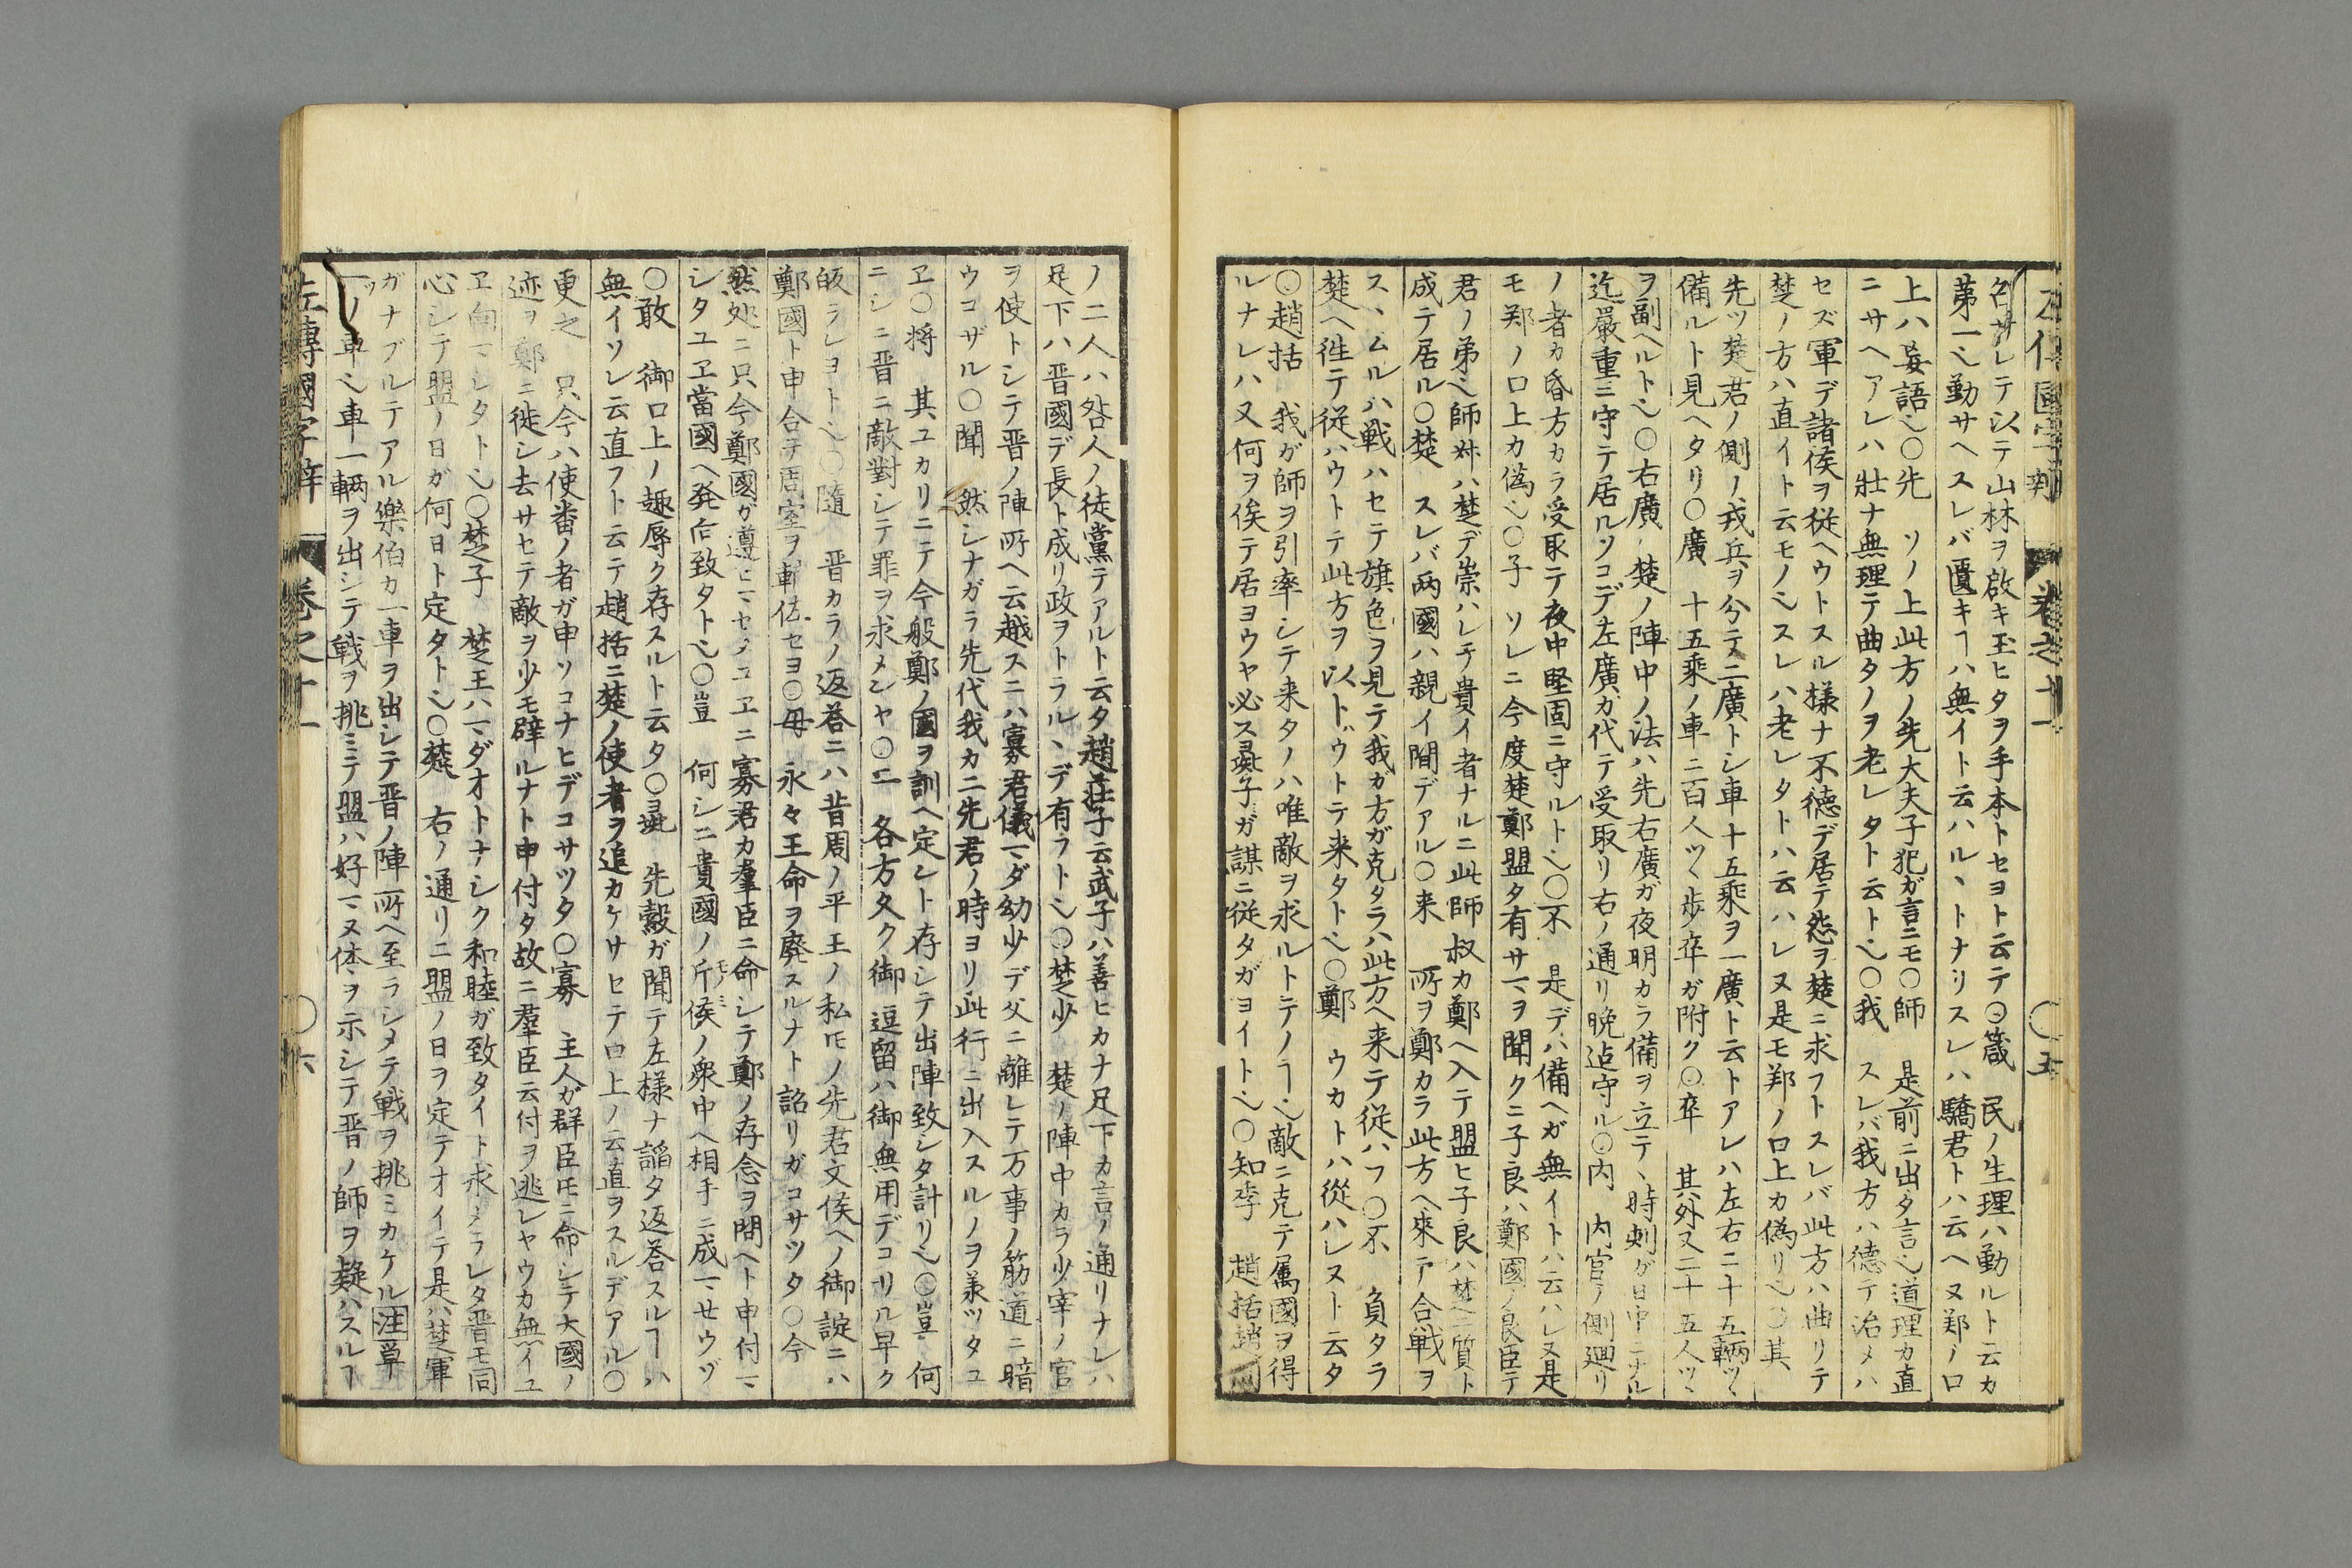 左傳國字辯 巻之十一 〇五
名サレテ以テ山林ヲ啟キ玉ヒタヲ手本トセヨト云テ〇箴 民ノ生理ハ動ルト云カ
第一也勤サヘスレバ匱キヿハ無イト云ハルヽトナリスレハ驕君トハ云ヘヌ鄭ノ口
上ハ妄語也〇先 ソノ上此方ノ先大夫子犯ガ言ニモ〇師 是前ニ出タ言也道理カ直
ニサヘアレハ壮ナ無理テ曲タノヲ老レタト云ト也〇我 スレバ我方ハ徳テ治メハ
セズ軍デ諸侯ヲ従ヘウトスル様ナ不徳デ居テ怨ヲ楚ニ求フトスレバ此方ハ曲リテ
楚ノ方ハ直イト云モノ也スレハ老レタトハ云ハレヌ是モ鄭ノ口上カ偽リ也〇其
先ツ楚君ノ側ノ戎兵ヲ分テ二廣トシ車十五乘ヲ一廣ト云トアレハ左右ニ十五輌ツヽ
備ルト見ヘタリ〇廣 十五乘ノ車ニ百人ツヽ歩卒ガ附ク〇卒 其外又二十五人ツヽ
ヲ副ヘルト也〇右廣 楚ノ陣中ノ法ハ先右廣ガ夜明カラ備ヲ立テヽ時刺ガ日中ニナル
迄嚴重ニ守テ居ルソコデ左廣ガ代テ受取リ右ノ通リ晩迠守ル〇内 内官ノ側廻リ
ノ者カ昏方カラ受取テ夜中堅固ニ守ルト也〇不 是デハ備ヘガ無イトハ云ハレヌ是
モ鄭ノ口上カ偽也〇子 ソレニ今度楚鄭盟タ有サマヲ聞クニ子良ハ鄭國ノ良臣テ
君ノ弟也師叔ハ楚デ崇ハレテ貴イ者ナルニ此師叔カ鄭ヘ入テ盟ヒ子良ハ楚ヘ質ト
成テ居ル〇楚 スレバ両國ハ親イ間デアル〇来 所ヲ鄭カラ此方ヘ來テ合戦ヲ
スヽムルハ戦ハセテ旗色ヲ見テ我ガ方ガ克タラハ此方ヘ来テ従ハフ〇不 負タラ
楚ヘ徃テ従ハウトテ此方ヲ以トドウトテ来タト也〇鄭 ウカトハ從ハレヌト云タ
〇趙括 我ガ師ヲ引率シテ来タノハ唯敵ヲ求ルトテノヿ也敵ニ克テ属國ヲ得
ルナレハ又何ヲ俟テ居ヨウヤ必ス彘子ガ謀ニ従タガヨイト也〇知季 趙括趙同
ノ二人ハ咎人ノ徒黨テアルト云タ趙莊子云武子ハ善ヒカナ足下カ言ノ通リナレハ
足下ハ晋國デ長ト成リ政ヲトラルヽデ有フト也〇楚少 楚ノ陣中カラ少宰ノ官
ヲ使トシテ晋ノ陣所ヘ云越スニハ寡君儀マダ幼少デ父ニ離レテ万事ノ筋道ニ暗
ウコザル〇聞 然シナガラ先代我カ二先君ノ時ヨリ此行ニ出入スルノヲ羕ツタユ
ヱ〇將 其ユカリニテ今般鄭ノ國ヲ訓ヘ定レト存シテ出陣致シタ計リ也〇豈 何
ニシニ晋ニ敵對シテ罪ヲ求メンヤ〇二 各方久ク御逗留ハ御無用デコリル早ク
皈ラレヨト也〇隨 晋カラノ返荅ニハ昔周ノ平王ノ私ドモノ先君文侯ヘノ御諚ニハ
鄭國ト申合テ周室ヲ輔佐セヨ〇毋 永々王命ヲ廃スルナト詔リガコサツタ〇今
然処ニ只今鄭國ガ遵ヒマセヌユヱニ寡君カ羣臣ニ命シテ鄭ノ存念ヲ問ヘト申付マ
シタユヱ當國ヘ発向致タト也〇豈 何シニ貴國ノ斤侯ノ衆中ヘ相手ニ成マセウヅ
〇敢 御口上ノ趣辱ク存スルト云タ〇彘 先縠ガ聞テ左様ナ謟タ返荅スルヿハ
無イソレ云直フト云テ趙括ニ楚ノ使者ヲ追カケサセテ口上ノ云直ヲスルデアル〇
更之 只今ハ使番ノ者ガ申ソコナヒデコサツタ〇寡 主人ガ群臣ドモニ命シテ大國ノ
迹ヲ鄭ニ徙シ去サセテ敵ヲ少モ辟ルナト申付タ故ニ羣臣云付ヲ逃レヤウカ無イユ
ヱ向マシタト也〇楚子 楚王ハマダオトナシク和睦ガ致タイト求メラレタ晋モ同
心シテ盟ノ日ガ何日ト定タト也〇楚 右ノ通リニ盟ノ日ヲ定テオイテ是ハ楚軍
ガナブルテアル樂伯カ一車ヲ出シテ晋ノ陣所ヘ至ラシメテ戦ヲ挑ミカケル注單
一ツノ車也車一輌ヲ出シテ戦ヲ挑ミテ盟ハ好マヌ体ヲ示シテ晋ノ師ヲ疑ハスルヿ
左傳國字辯 巻之十一 〇六